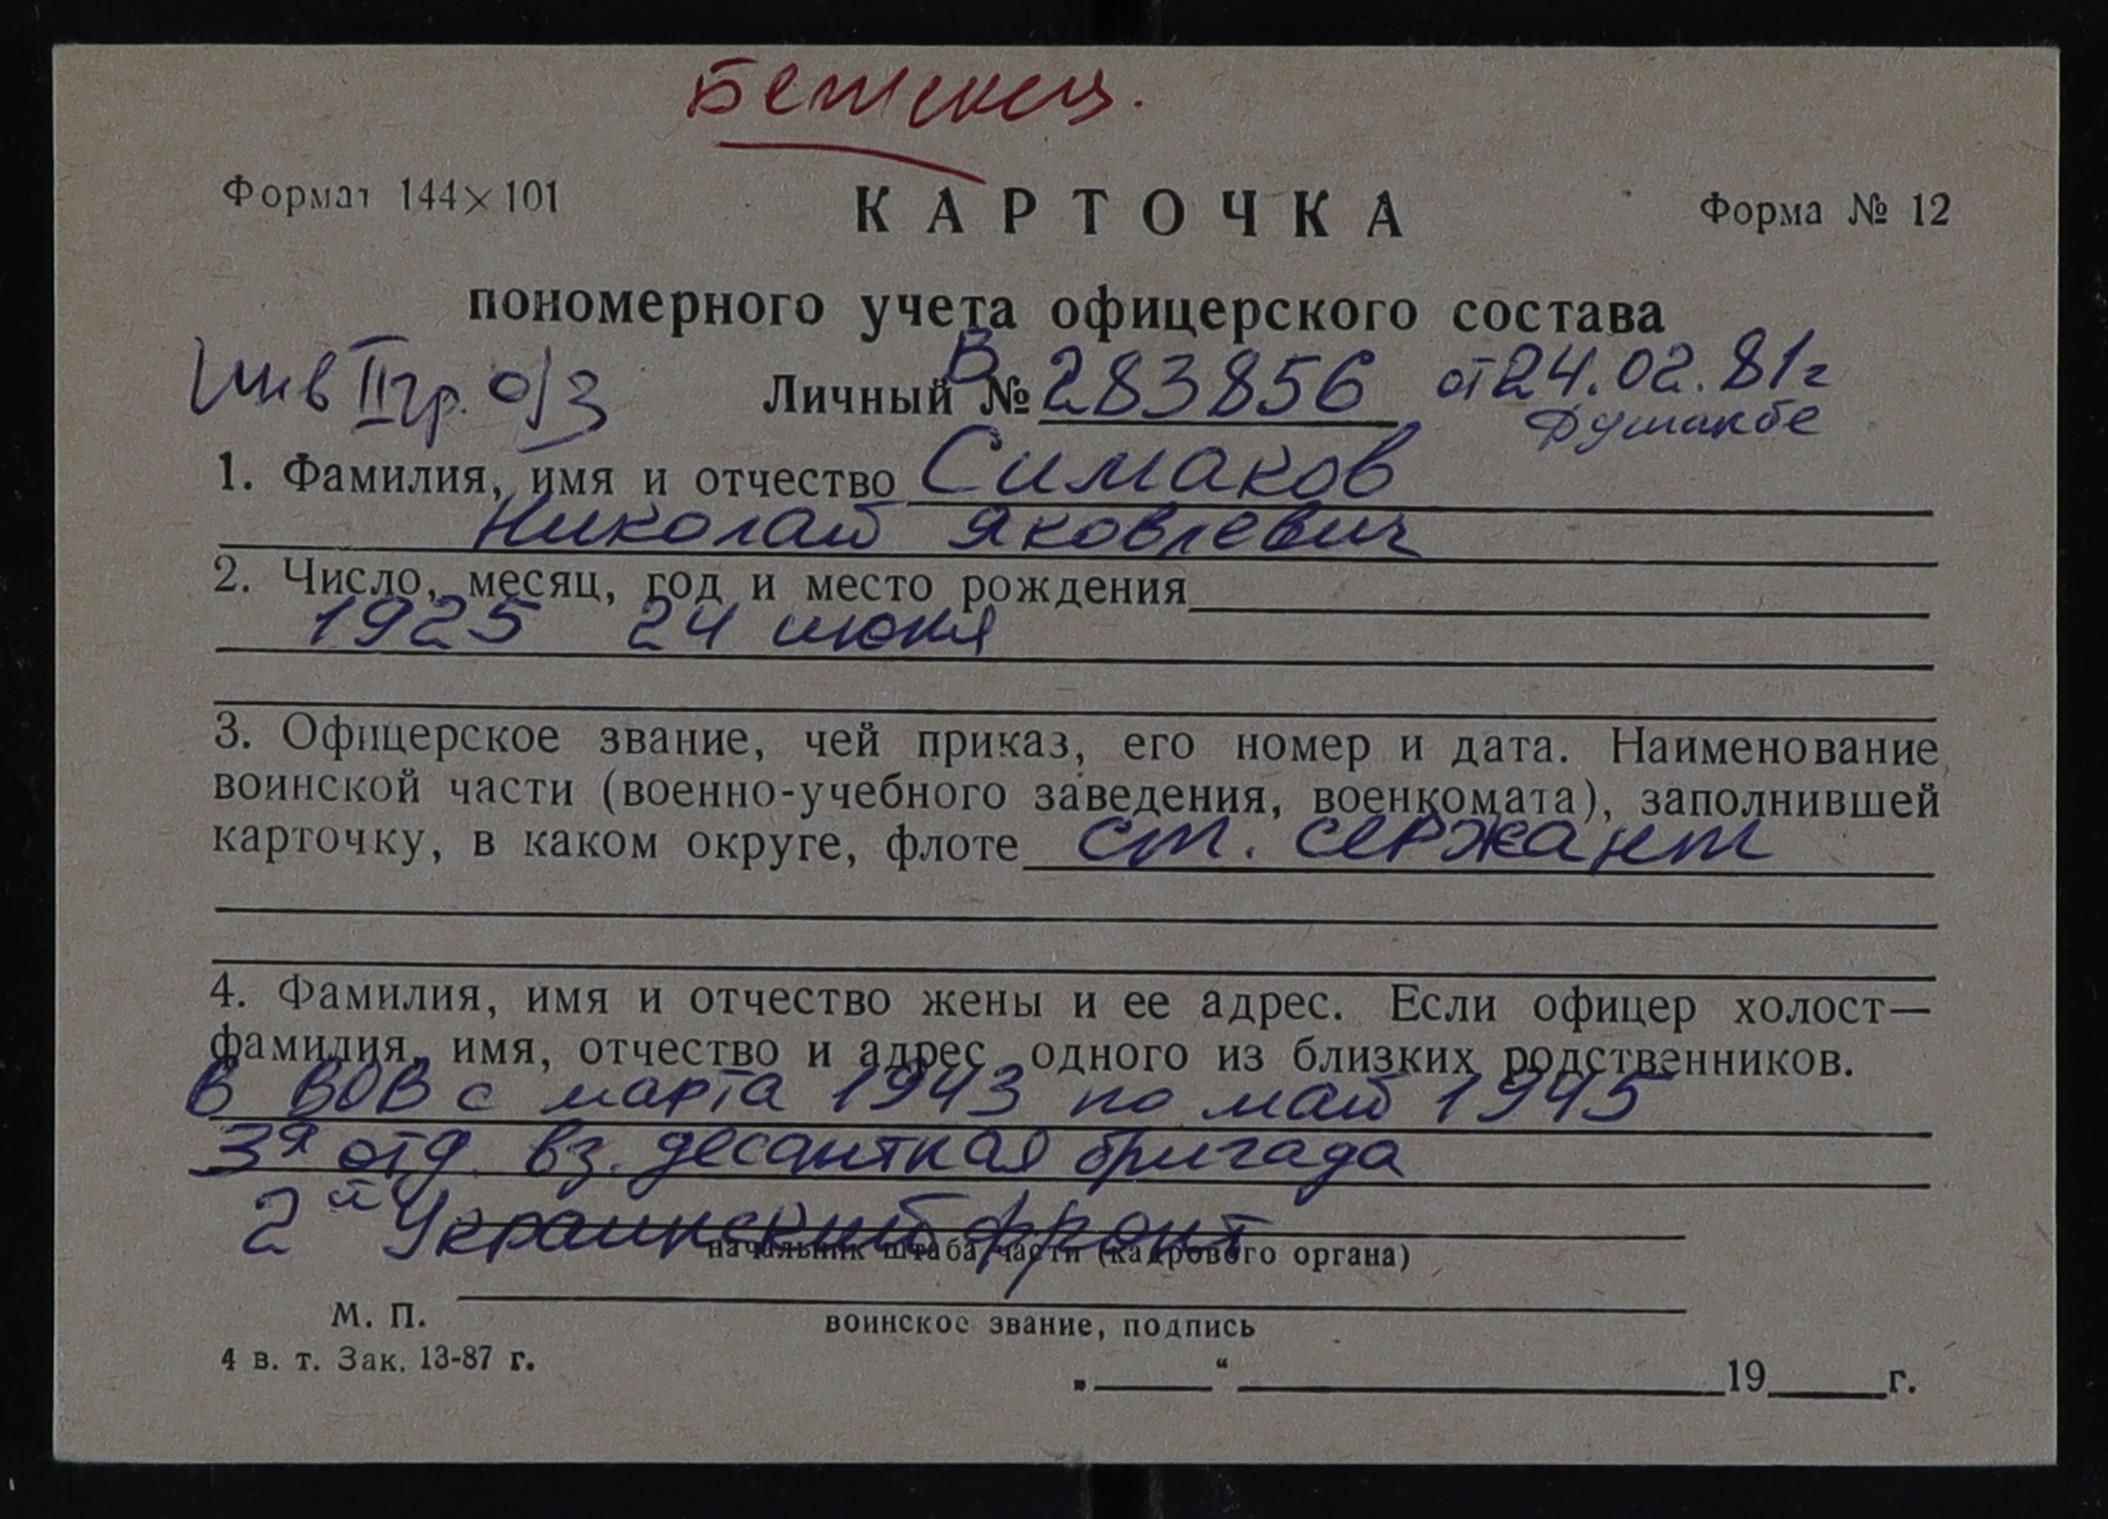 Беженец.
Формат 144×101
КАРТОЧКА
Форма № 12
пономерного учета офицерского состава
Инв II гр. о/з
Личный В № 283856 от 24.02.81г
Душанбе
1. Фамилия, имя и отчество Симаков
Николай Яковлевич
2. Число, месяц, год и место рождения
1925 24 июня
3. Офицерское звание, чей приказ, его номер и дата. Наименование
воинской части (военно-учебного заведения, военкомата), заполнившей
карточку, в каком округе, флоте ст. сержант
4. Фамилия, имя и отчество жены и ее адрес. Если офицер холост—
фамилия, имя, отчество и адрес одного из близких родственников.
В ВОВ с марта 1943 по май 1945
3я отд. вз. десантная бригада
2й Украинский фронт
начальник штаба части (кадрового органа)
М. П.
воинское звание, подпись
4 в. т. Зак. 13-87 г.
„ “ 19 г.